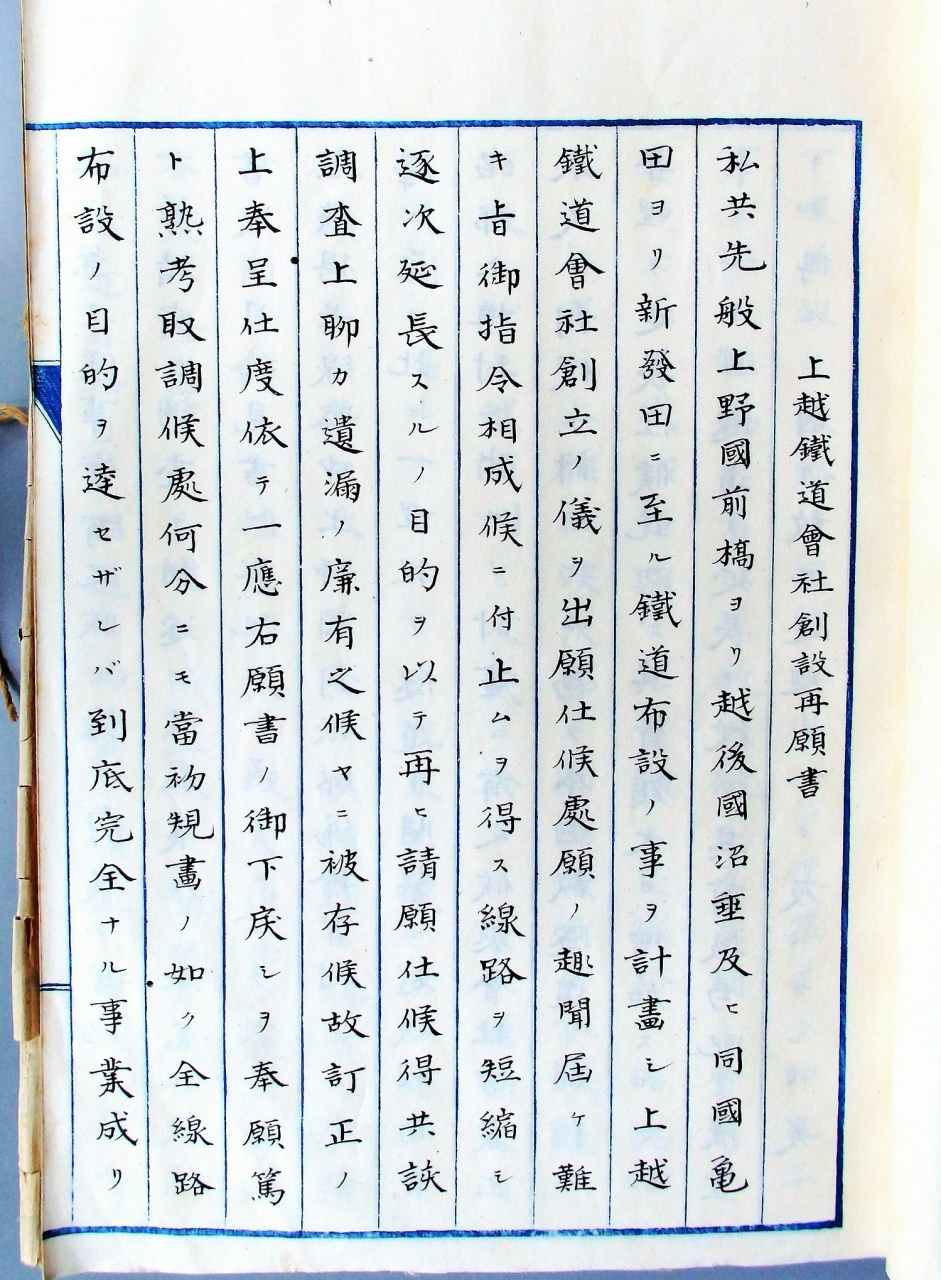 上越鐵道會社創設再願書
私共先般上野國前槗ヨリ越後國沼埀及ヒ同國亀
田ヨリ新發田ニ至ル鐵道布設ノ事ヲ計畵シ上越
鐵道會社創立ノ儀ヲ出願仕候處願ノ趣聞届ケ難
キ旨御指令相成候ニ付止ムヲ得ス線路ヲ短縮シ
逐次延長スルノ目的ヲ以テ再ヒ請願仕候得共該
調査上聊カ遺漏ノ廉有之候ヤニ被存候故訂正ノ
上奉呈仕度依テ一應右願書ノ御下戻シヲ奉願篤
ト熟考取調候處何分ニモ當初規畵ノ如ク全線路
布設ノ目的ヲ達セザレバ到底完全ナル事業成リ